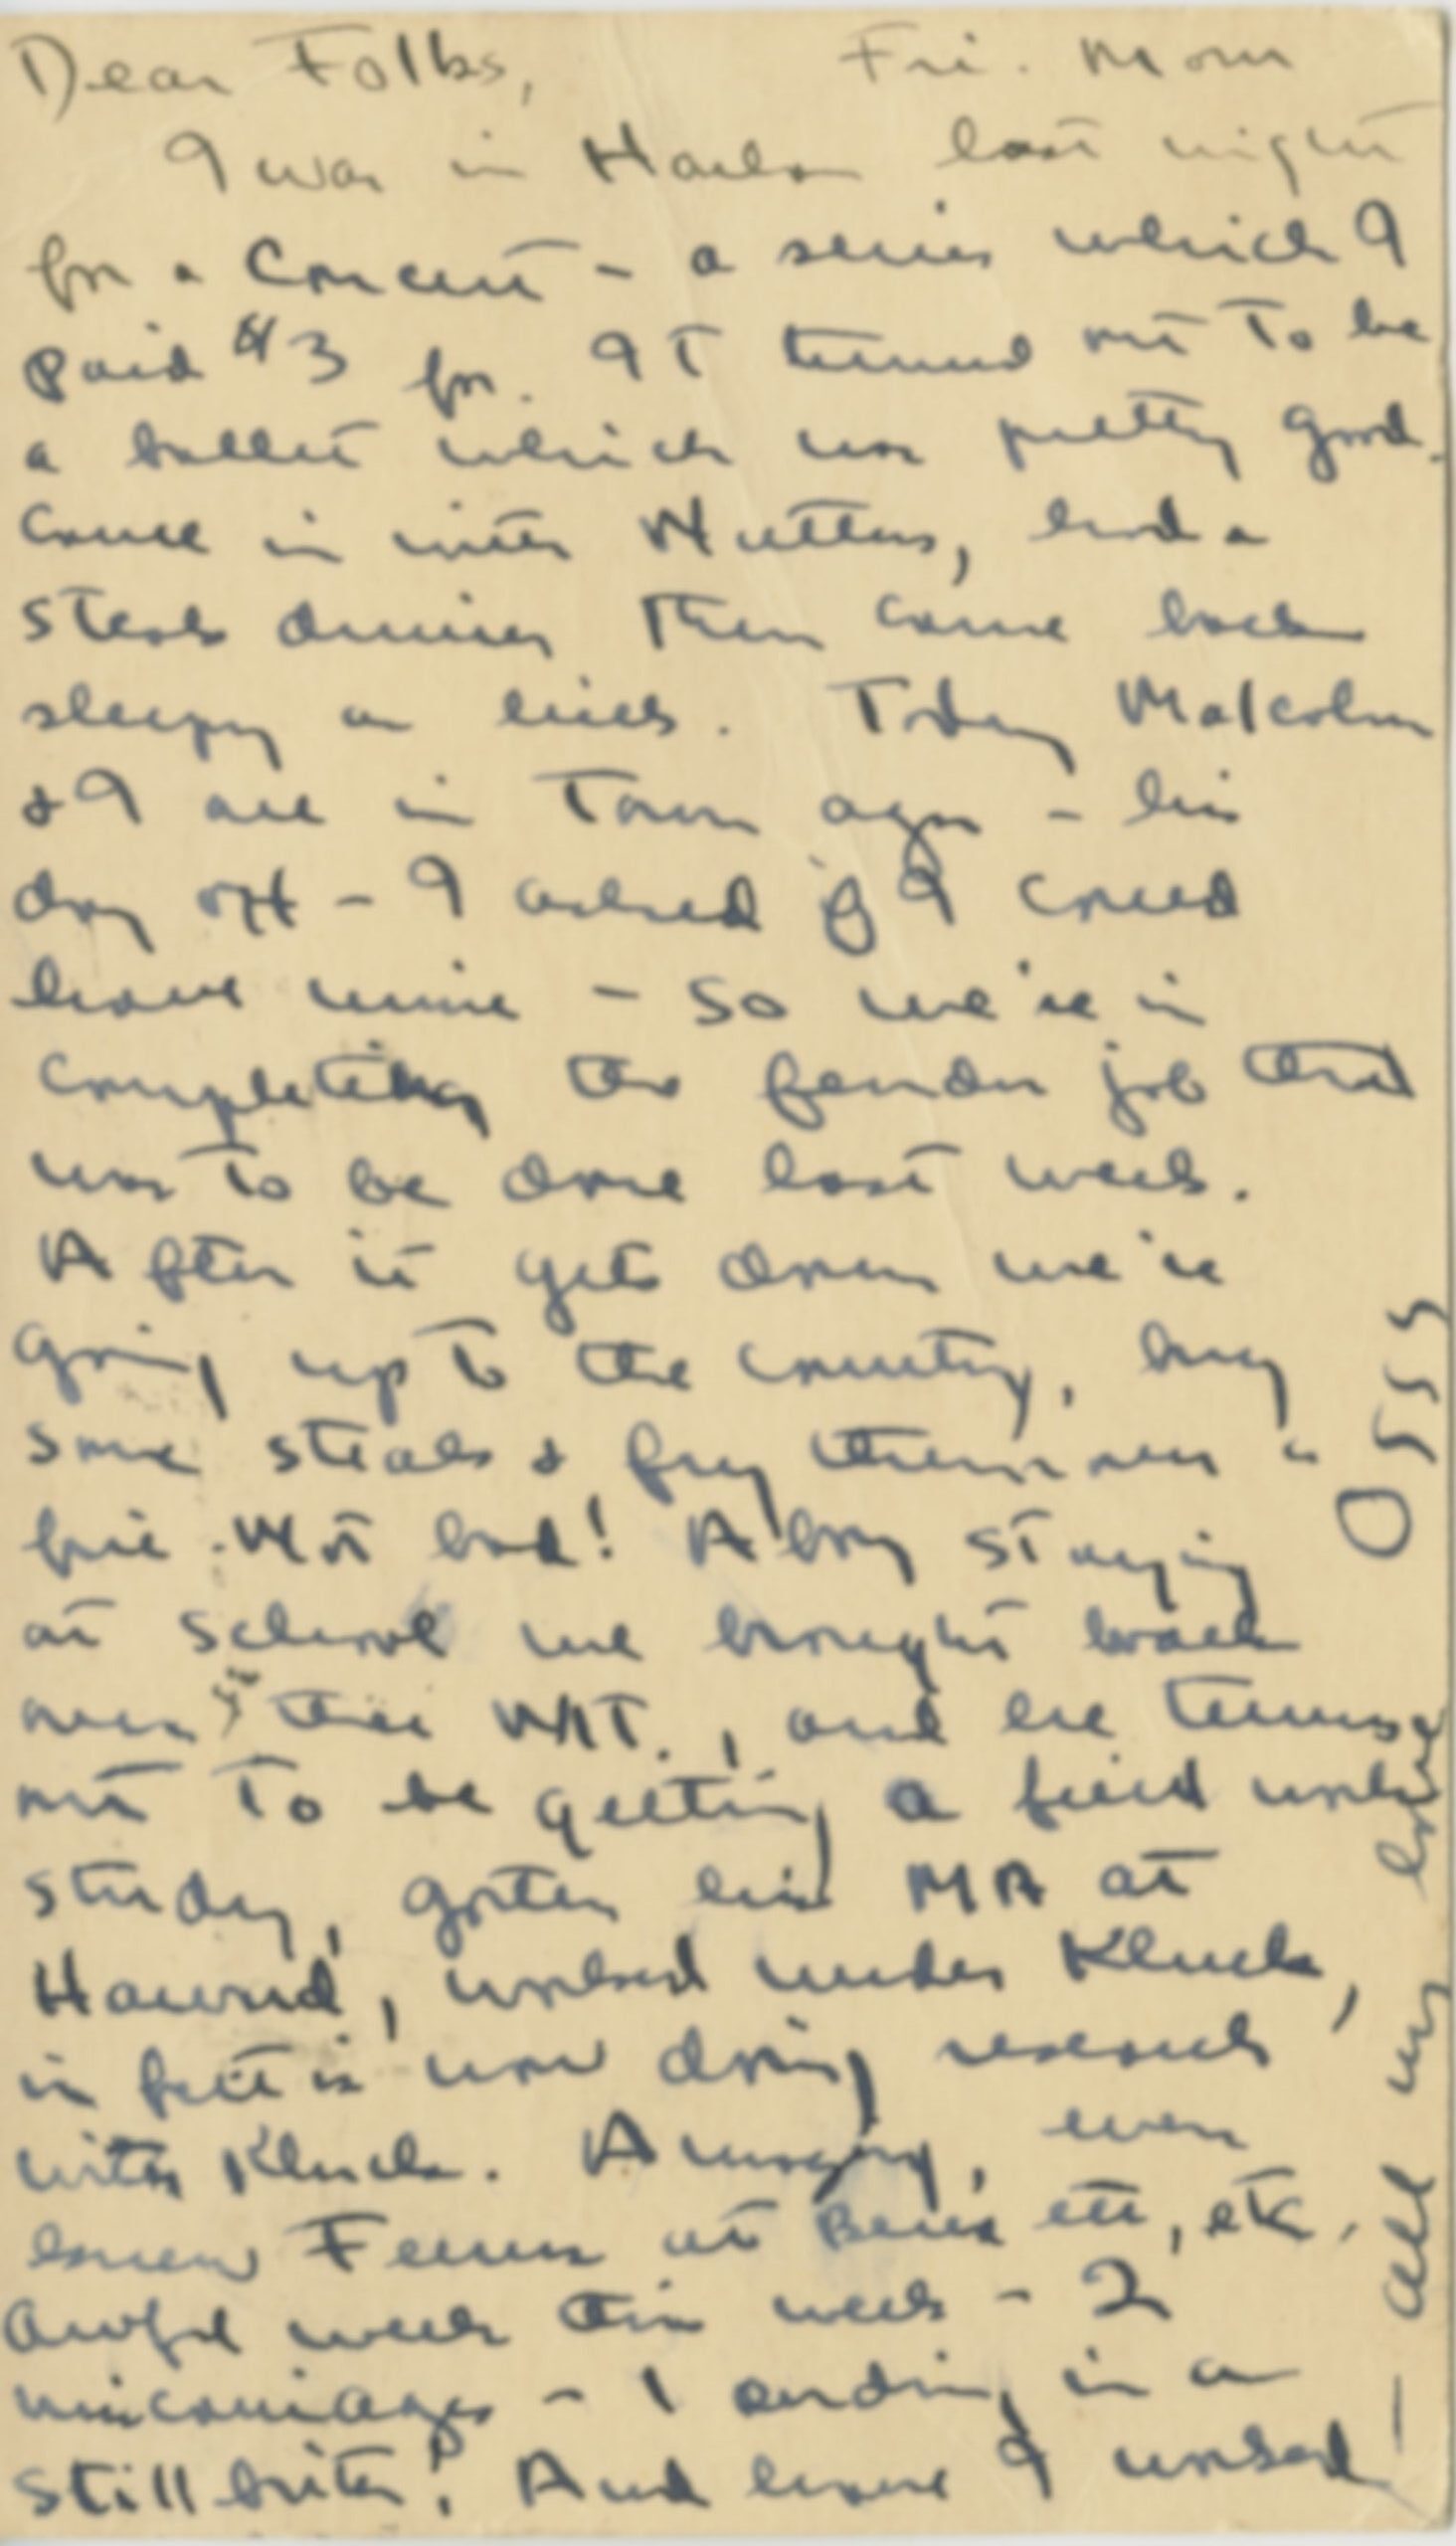 Dear Folks, Fri. Morn
I was in Harlan last night
for a concert - a series which I
paid $3 for. It turned out to be
a ballet which was pretty good.
Came in with Nutters, had a
steak dinner then came back
sleepy as hell. Today Malcolm
& I are in Town again - his
day off - I asked if I could
have mine - So we're in
completing the fender job that
was To be done last week.
After it gets done we're
going up to the country, buy
some steaks & fry them over a
fire. Not bad! A boy staying
at school we brought back
over the WKT., and he turns
out To be getting a field work
study, gotten his MA at
Harvard, worked under Kluck,
in fact is now doing research
with Kluck. Amazing, even
knew Fenns at etc, etc.
Awful week this week - 2
miscarriages - 1 ending in a
still birth! And have I worked
- all my love
OSSS